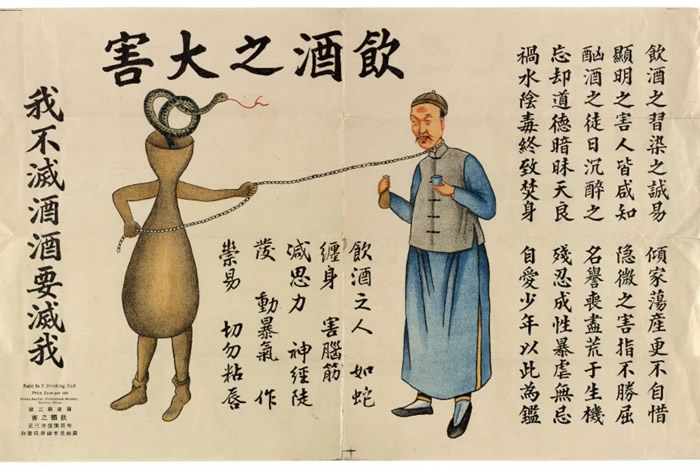 飲酒之大害
飲酒之習染之誠易 傾家蕩產更不自惜
顯明之害人皆咸知 隱微之害指不勝屈
酗酒之徒日沉醉之 名譽喪盡荒于生機
忘却道德暗昧天良 殘忍成性暴虐無忌
禍水陰毒終致焚身 自愛少年以此為鑑
飲酒之人 如蛇
纏身 害腦筋
減思力 神經徒
發 動暴氣 作
祟易 切勿粘唇
我不滅酒酒要滅我
Drinking Evil
China Baptist Publication Society,
Canton, China
飲酒之害